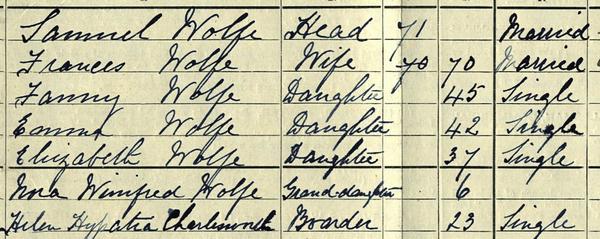 Samuel Wolfe Head 71 Married
Frances Wolfe Wife 70 70 Married
Fanny Wolfe Daughter 45 Single
Emma Wolfe Daughter 42 Single
Elizabeth Wolfe Daughter 37 Single
Nora Winifred Wolfe Grand-daughter 6
Helen Hypatia Charlesworth Boarder 23 Single